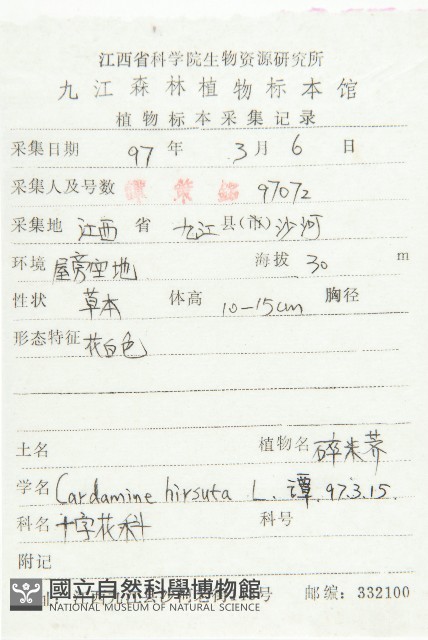 江西省科学院生物资源研究所
九江森林植物标本馆
植物标本采集记录
采集日期 97 年 3 月 6 日
采集人及号数 97072
采集地 江西 省 九江 县(市) 沙河
环境 屋旁空地 海拔 30 m
性状 草本 体高 10-15cm 胸径
形态特征 花白色
土名 植物名 碎米荠
学名 Cardamine hirsuta L. 谭, 97.3.15.
科名 十字花科 科号
附记
號 邮编: 332100
國立自然科學博物館
NATIONAL MUSEUM OF NATURAL SCIENCE